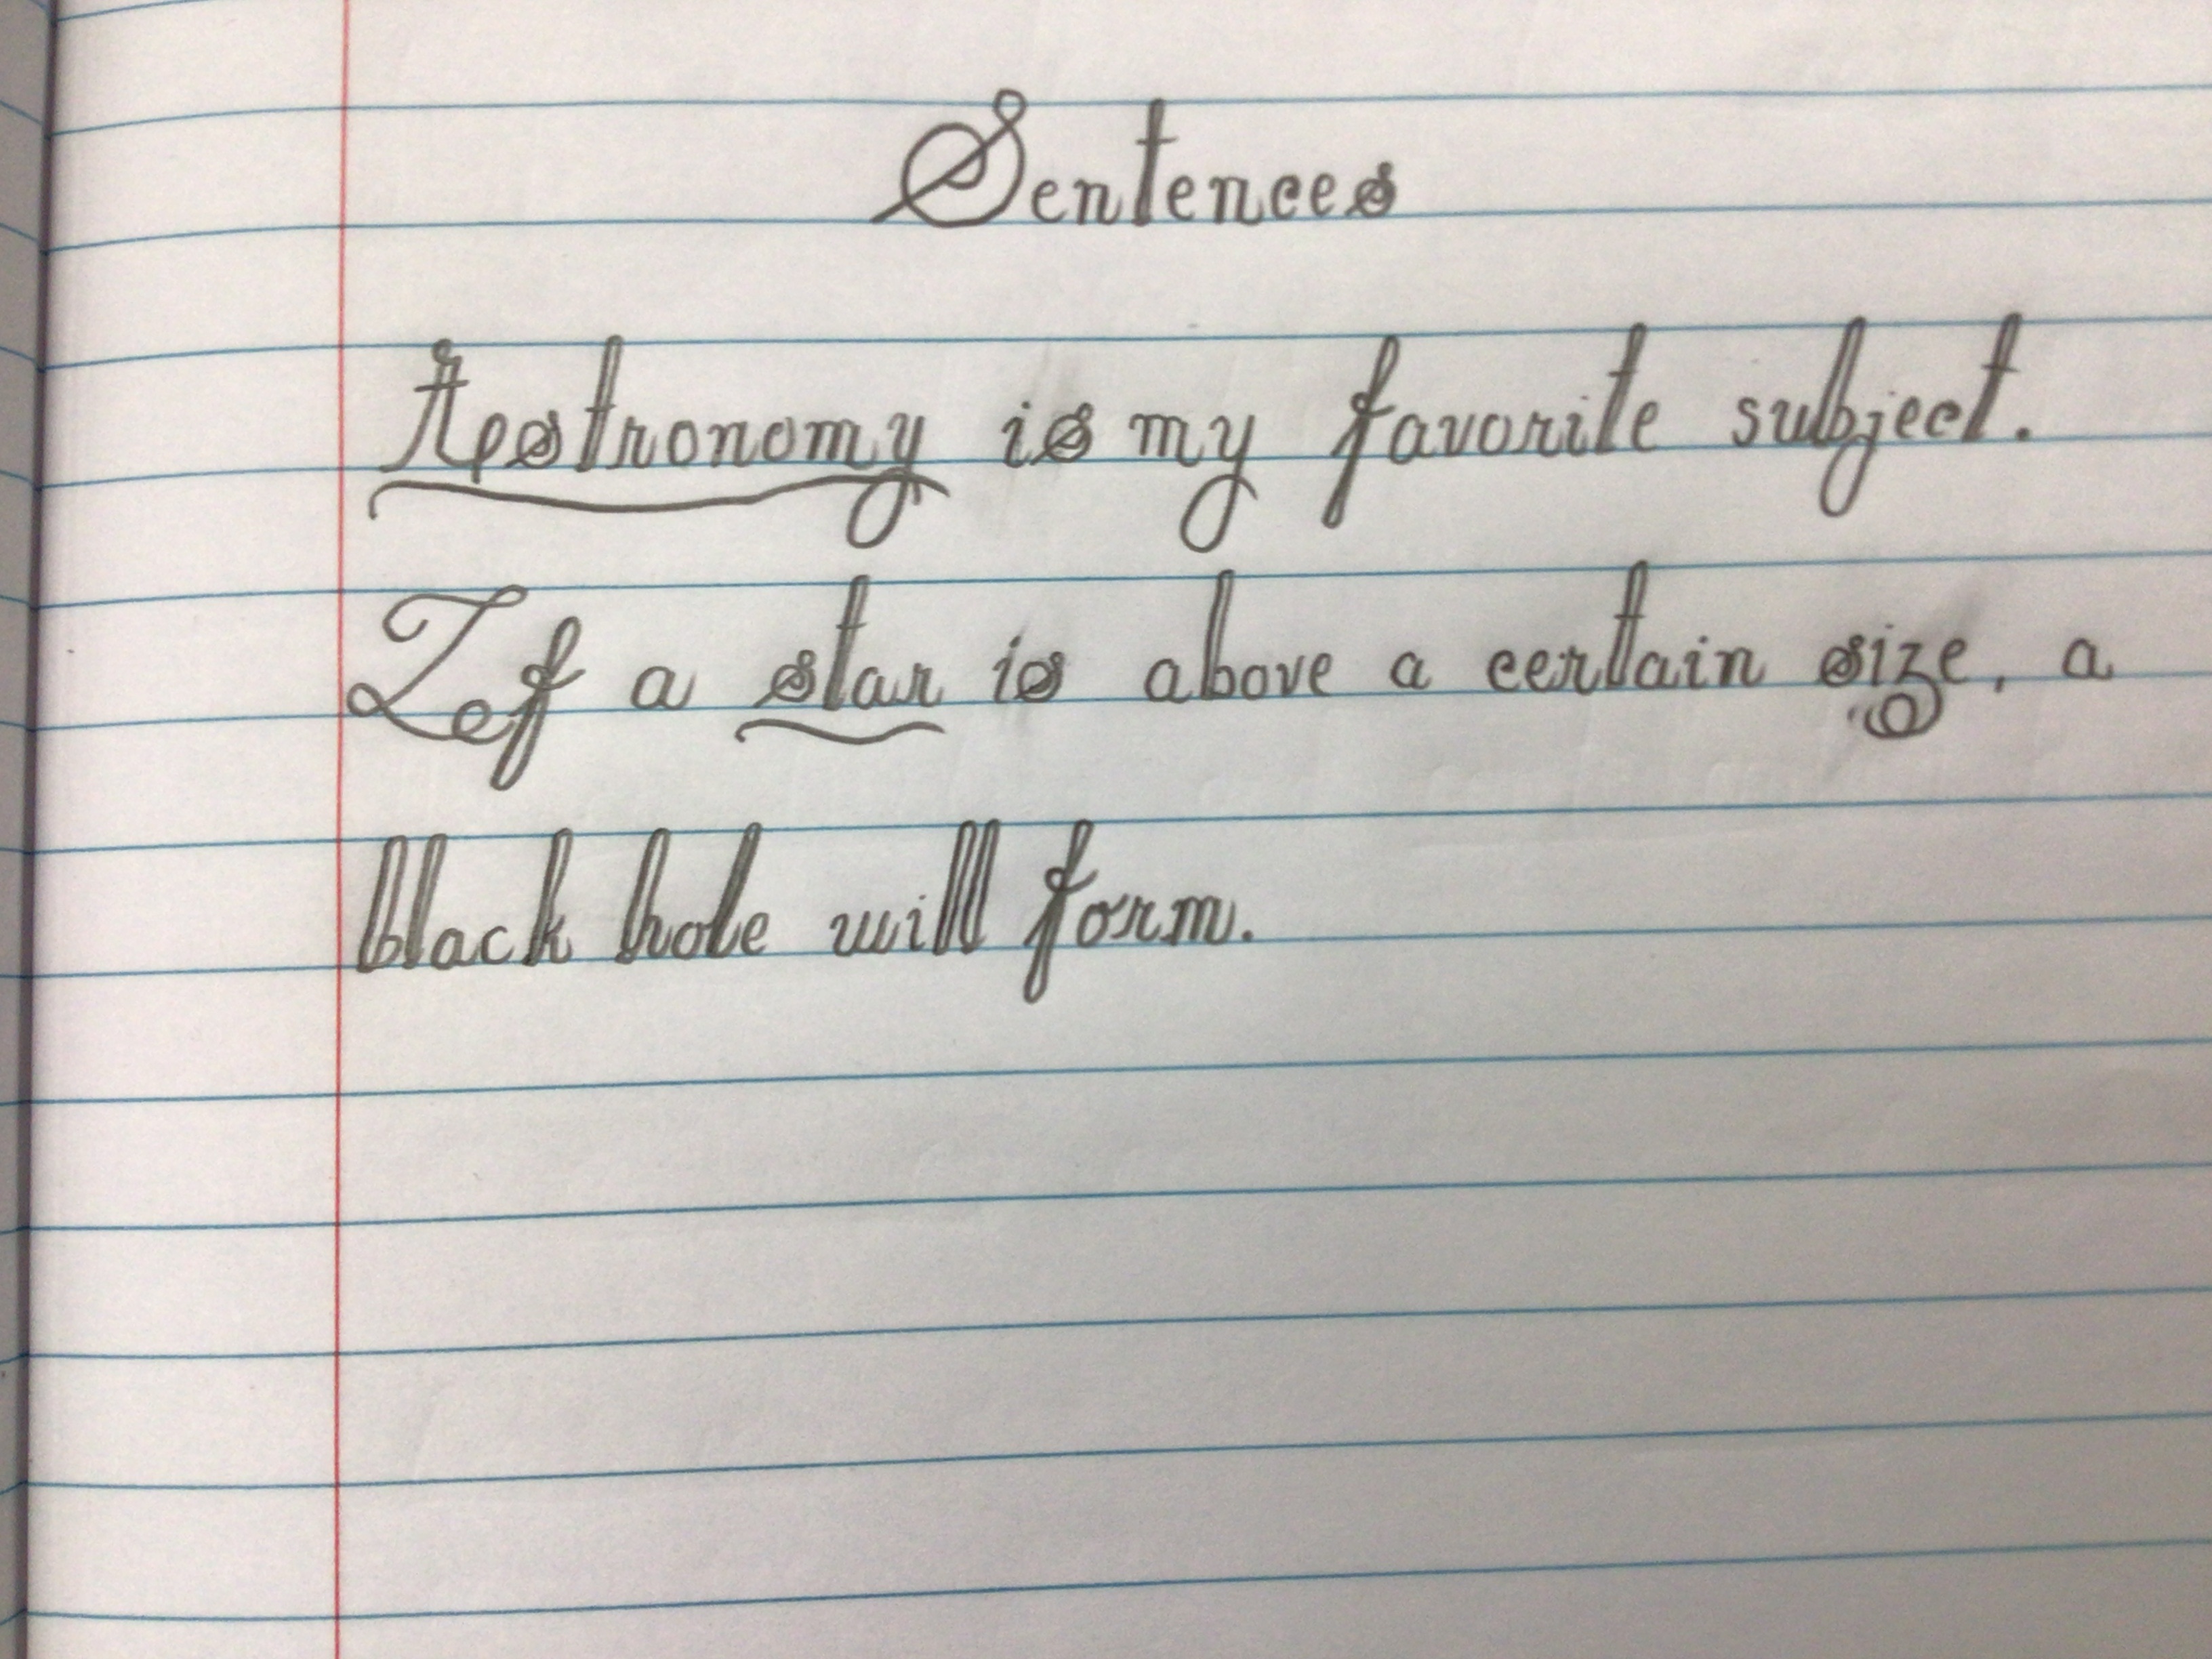 Sentences
Astronomy is my favorite subject.
If a star is above a certain size, a
black hole will form.